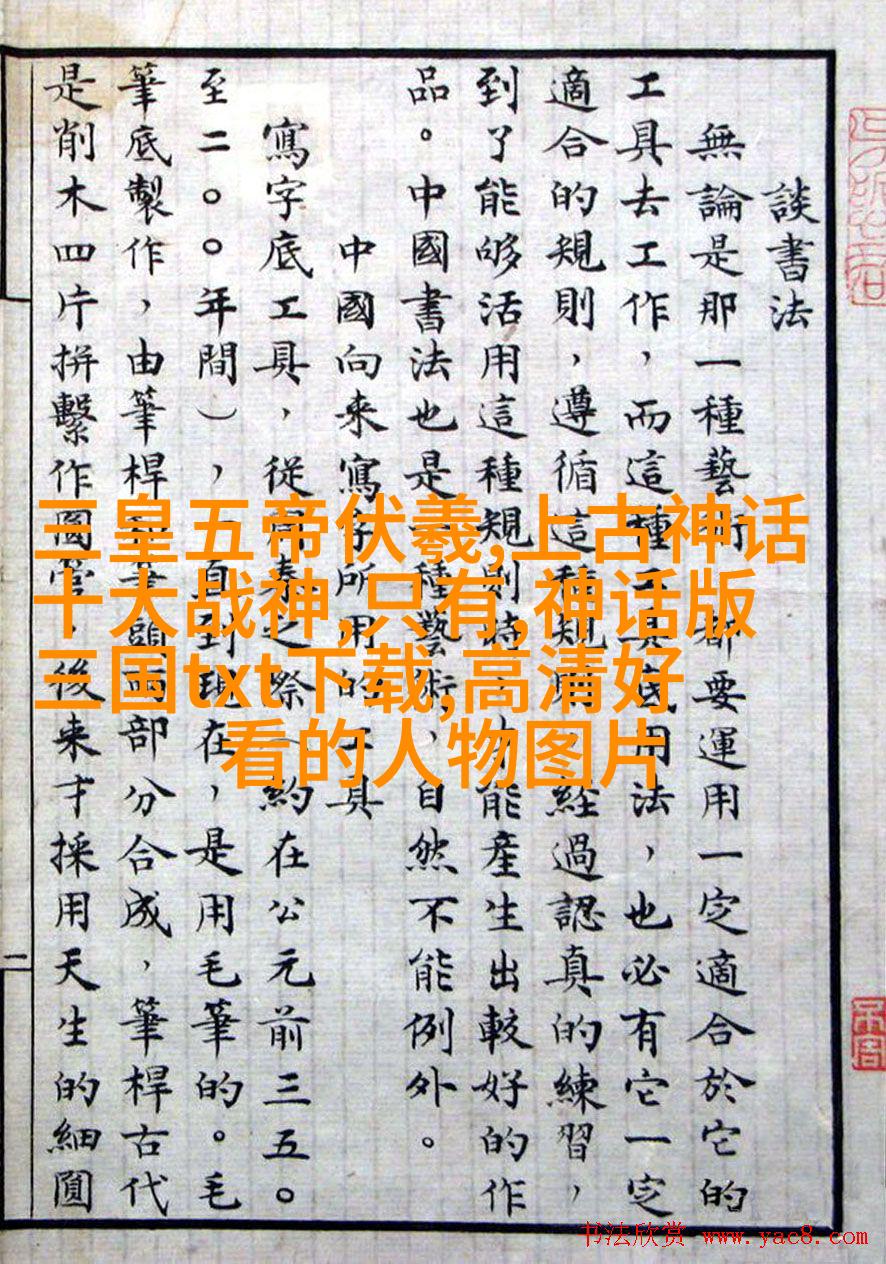 談書法
無論是那一種藝術，都要運用一定適合於它的
工具去工作，而這種工具底用法，也必有它一定
適合的規則，遵循這種規則，經過認真的練習，
到了能够活用這種規則時，才能產生出較好的作
品。中國書法也是一種藝術，自然不能例外。
中國向来寫字所用的工具
寫字底工具，從周秦之際（約在公元前三五〇
至二〇〇年間），一直到現在，是用毛筆的。毛
筆底製作，由筆桿和筆頭兩部分合成，筆桿古代
是削木四片拼繫作圓管，後来才採用天生的細圓
二
三皇五帝伏羲,上古神话
十大战神,只有,神话版
三国txt下载,高清好
看的人物图片
书法欣赏 www.yac8.com